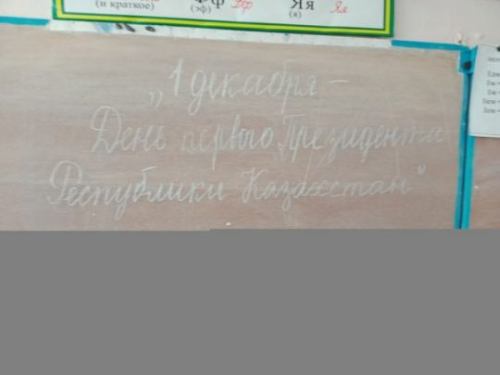 (и краткое)
(эф)
Яя
(я)
Яя
„1 декабря –
День первого Президента
Республики Казахстан"